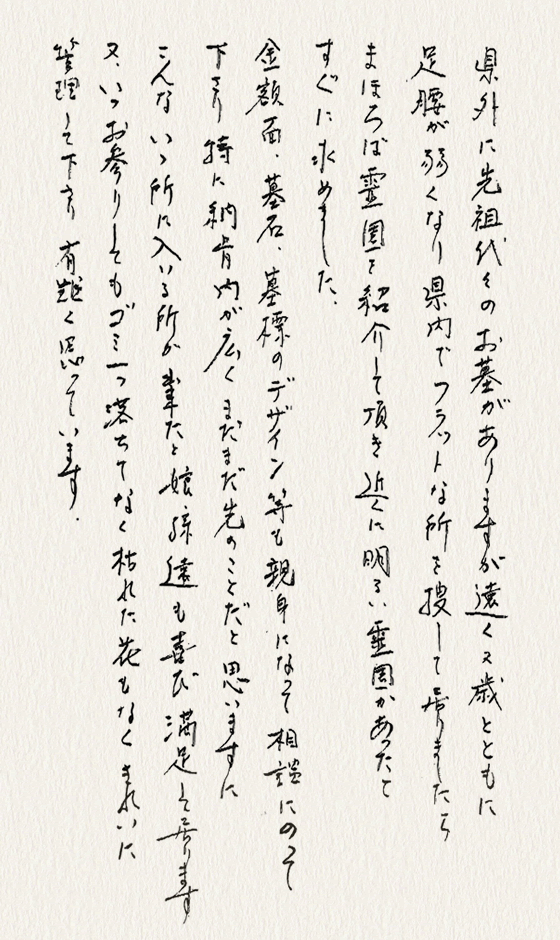 県外に先祖代々のお墓がありますが遠く又歳とともに
足腰が弱くなり県内でフラットな所を捜して居りましたら
まほろば霊園を紹介して頂き近くに明るい霊園があったと
すぐに求めました、
金額面、墓石、墓標のデザイン等も親身になって相談にのって
下さり特に納骨内が広くまだまだ先のことだと思いますに
こんないい所に入いる所が出来たと娘、孫達も喜び満足して居ります
又、いつお参りしてもゴミ一つ落ちてなく枯れた花もなくきれいに
管理して下さり有難く思っています.